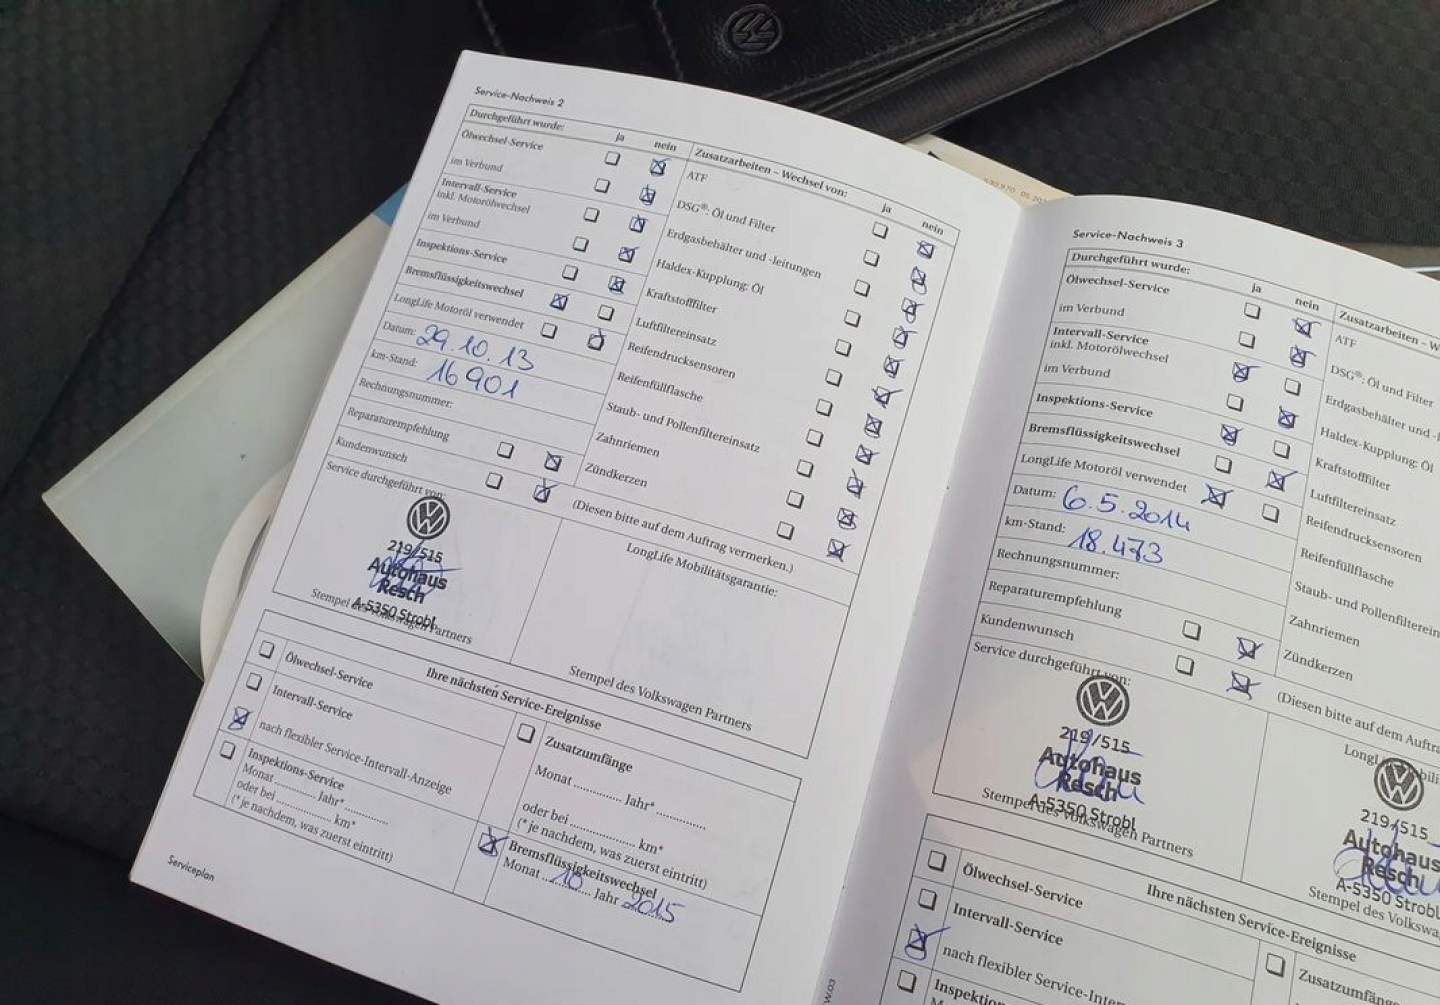 Service-Nachweis 2
Durchgeführt wurde: ja nein
Ölwechsel-Service
im Verbund
Intervall-Service
inkl. Motorölwechsel
im Verbund
Inspektions-Service
Bremsflüssigkeitswechsel
LongLife Motoröl verwendet
Datum: 29.10.13
km-Stand: 16901
Rechnungsnummer:
Reparaturempfehlung
Kundenwunsch
Service durchgeführt von:
219/515
Autohaus
Resch
A-5350 Strobl
Stempel des Volkswagen Partners
Zusatzarbeiten – Wechsel von: ja nein
ATF
DSG®: Öl und Filter
Erdgasbehälter und -leitungen
Haldex-Kupplung: Öl
Kraftstofffilter
Luftfiltereinsatz
Reifendrucksensoren
Reifenfüllflasche
Staub- und Pollenfiltereinsatz
Zahnriemen
Zündkerzen
(Diesen bitte auf dem Auftrag vermerken.)
LongLife Mobilitätsgarantie:
Stempel des Volkswagen Partners
Ihre nächsten Service-Ereignisse
Ölwechsel-Service
Intervall-Service
nach flexibler Service-Intervall-Anzeige
Inspektions-Service
Monat ............ Jahr* ............
oder bei ............ km*
(*je nachdem, was zuerst eintritt)
Zusatzumfänge
Monat ............ Jahr* ............
oder bei ............ km*
(*je nachdem, was zuerst eintritt)
Bremsflüssigkeitswechsel
Monat 10 Jahr 2015
Serviceplan
Service-Nachweis 3
Durchgeführt wurde: ja nein
Ölwechsel-Service
im Verbund
Intervall-Service
inkl. Motorölwechsel
im Verbund
Inspektions-Service
Bremsflüssigkeitswechsel
LongLife Motoröl verwendet
Datum: 6.5.2014
km-Stand: 18.473
Rechnungsnummer:
Reparaturempfehlung
Kundenwunsch
Service durchgeführt von:
219/515
Autohaus
Resch
A-5350 Strobl
Stempel des Volkswagen Partners
Zusatzarbeiten – W
ATF
DSG®: Öl und Filter
Erdgasbehälter und -l
Haldex-Kupplung: Öl
Kraftstofffilter
Luftfiltereinsatz
Reifendrucksensoren
Reifenfüllflasche
Staub- und Pollenfilterein
Zahnriemen
Zündkerzen
(Diesen bitte auf dem Auftra
219/515
Autohaus
Resch
A-5350 Strobl
Stempel des Volkswag
Ihre nächsten Service-Ereignisse
Ölwechsel-Service
Intervall-Service
nach flexibler Service-Inter
Inspektions
Zusatzumfänge